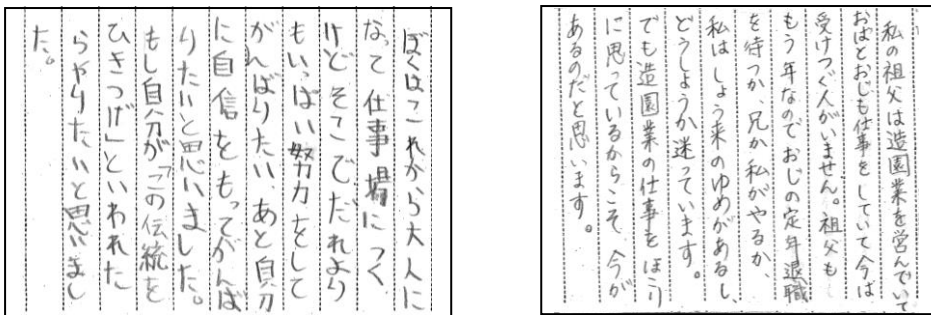 ぼくはこれから大人に
なって仕事場につく
けどそこでだれより
もいっぱい努力をして
がんばりたい、あと自分
に自信をもってがんば
りたいと思いました。
もし自分が「この伝統を
ひきつげ」といわれた
らやりたいと思いまし
た。
私の祖父は造園業を営んでいて
おばとおじも仕事をしていて今は
受けつぐ人がいません。祖父も
もう年なのでおじの定年退職
を待つか、兄か私がやるか、
私はしょう来のゆめがあるし、
どうしようか迷っています。
でも造園業の仕事をほこり
に思っているからこそ今が
あるのだと思います。